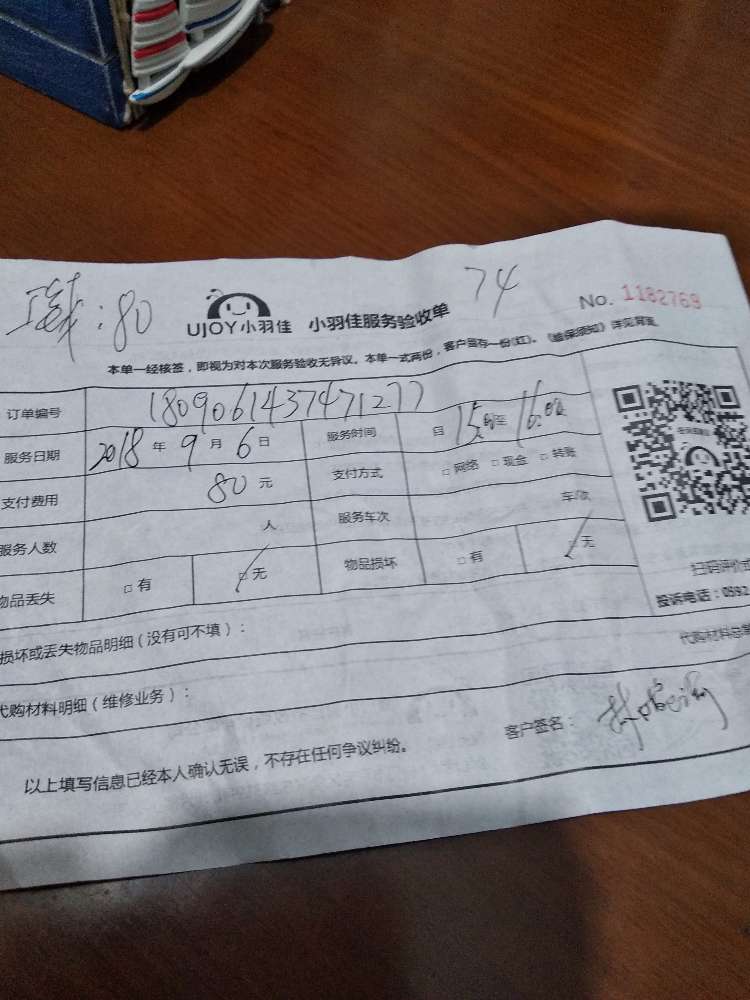 :80
74
UJOY小羽佳 小羽佳服务验收单 No. 1182769
本单一经核签，即视为对本次服务验收无异议。本单一式两份，客户留存一份(红)。《维保须知》详见背面
订单编号 1809061437471277
服务日期 2018年9月6日 服务时间 自15:00至16:00
支付费用 80元 支付方式 □网络 □现金 □转账
服务人数 人 服务车次 车/次
物品丢失 □有 □无 物品损坏 □有 □无
扫码评价
投诉电话：0592
损坏或丢失物品明细（没有可不填）：
代购材料总
代购材料明细（维修业务）：
以上填写信息已经本人确认无误，不存在任何争议纠纷。 客户签名：